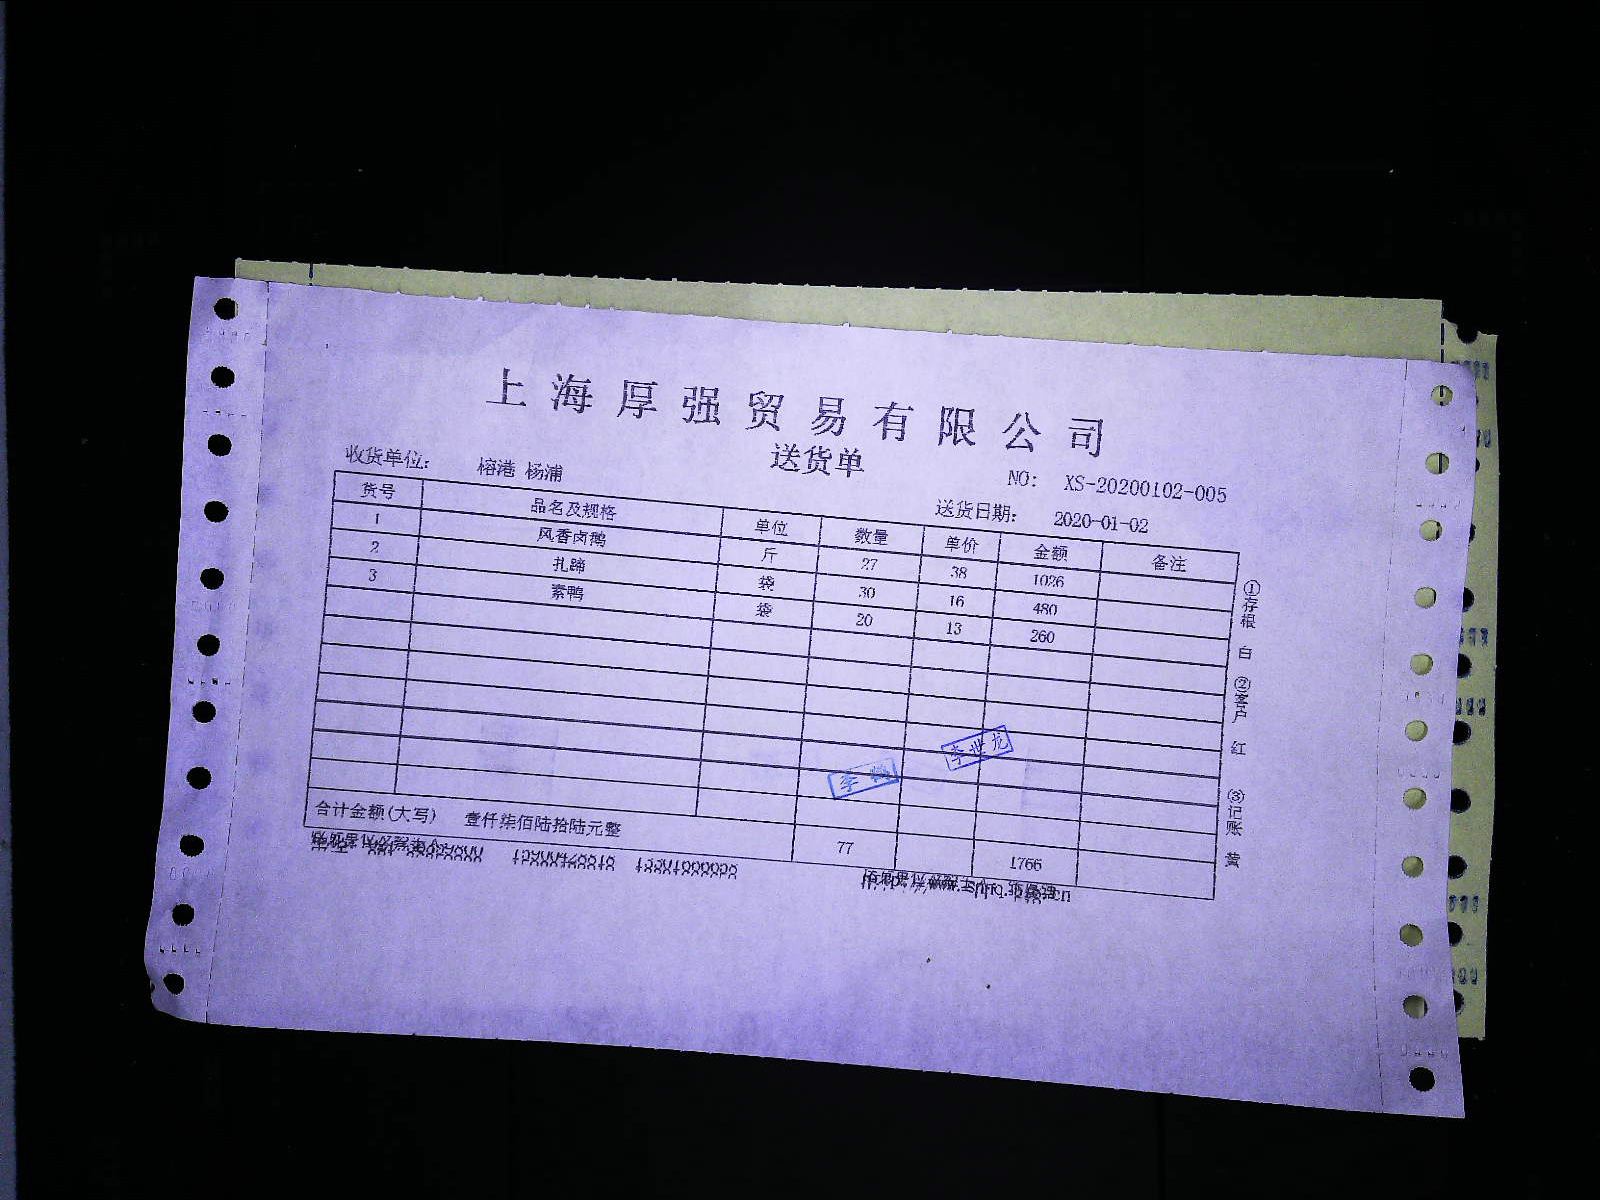 上海厚强贸易有限公司
送货单
收货单位: 榕港 杨浦
NO: XS-20200102-005
送货日期: 2020-01-02
货号 品名及规格 单位 数量 单价 金额 备注
1 风香卤鹅 斤 27 38 1026
2 扎蹄 袋 30 16 480
3 素鸭 袋 20 13 260
李世龙
李
合计金额(大写) 壹仟柒佰陆拾陆元整 77 1766
①存根 白 ②客户 红 ③记账 黄